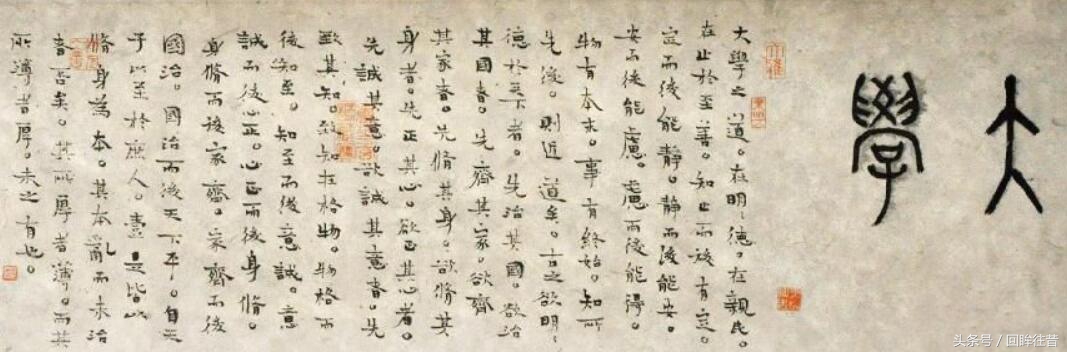 大學
大學之道。在明〻德。在親民。
在止於至善。知止而後有定。
定而後能靜。靜而後能安。
安而後能慮。慮而後能得。
物有本末。事有終始。知所
先後。則近道矣。古之欲明〻
德於天下者。先治其國。欲治
其國者。先齊其家。欲齊
其家者。先脩其身。欲脩其
身者。先正其心。欲正其心者。
先誠其意。欲誠其意者。先
致其知。致知在格物。物格而
後知至。知至而後意誠。意
誠而後心正。心正而後身脩。
身脩而後家齊。家齊而後
國治。國治而後天下平。自天
子以至於庶人。壹是皆以
脩身為本。其本亂而末治
者否矣。其所厚者薄。而其
所薄者厚。未之有也。
头条号 / 回眸往昔